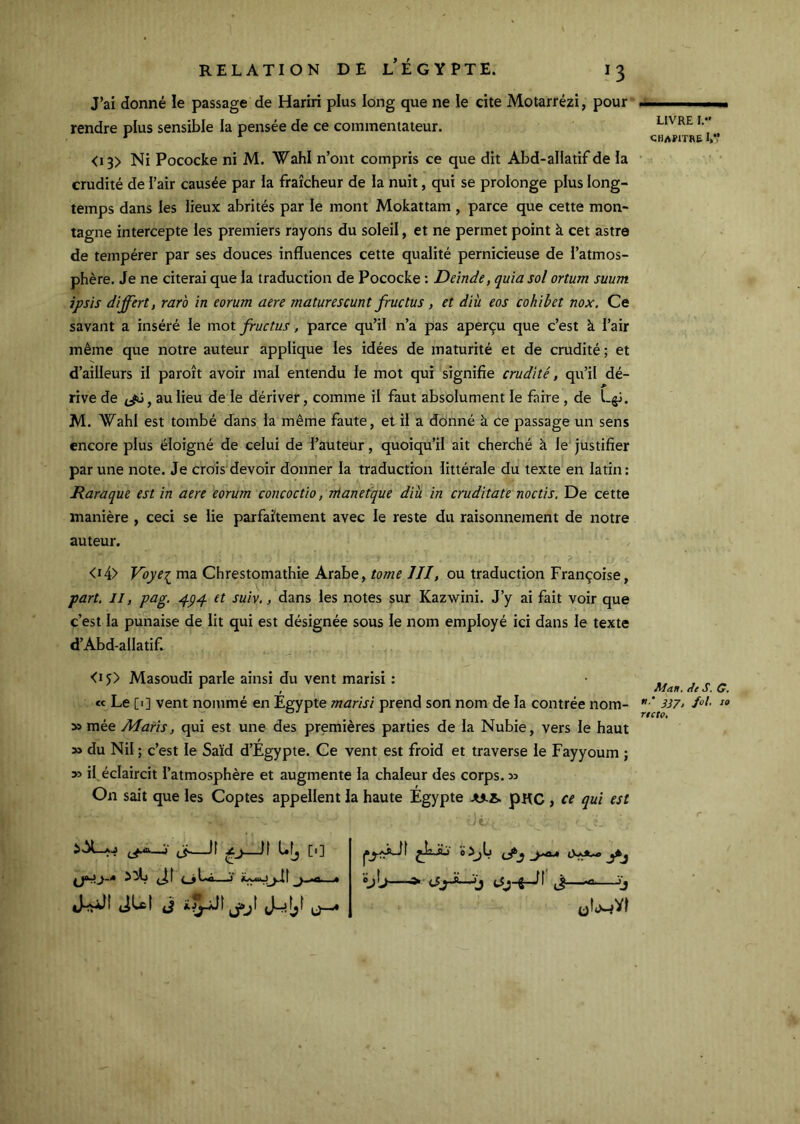 RELATION DE L'ÉGYPTE. 13
J'ai donné le passage de Hariri plus long que ne le cite Motarrézi, pour
rendre plus sensible la pensée de ce commentateur.
LIVRE I.er
CHAPITRE I.er
<13> Ni Pococke ni M. Wahl n'ont compris ce que dit Abd-allatif de la
crudité de l'air causée par la fraîcheur de la nuit, qui se prolonge plus long-
temps dans les lieux abrités par le mont Mokattam, parce que cette mon-
tagne intercepte les premiers rayons du soleil, et ne permet point à cet astre
de tempérer par ses douces influences cette qualité pernicieuse de l'atmos-
phère. Je ne citerai que la traduction de Pococke : Deinde, quia sol ortum suum
ipsis differt, rarò in eorum aere maturescunt fructus, et diù eos cohibet nox. Ce
savant a inséré le mot fructus, parce qu'il n'a pas aperçu que c'est à l'air
même que notre auteur applique les idées de maturité et de crudité ; et
d'ailleurs il paroît avoir mal entendu le mot qui signifie crudité, qu'il dé-
rive de , au lieu de le dériver, comme il faut absolument le faire, de .
M. Wahl est tombé dans la même faute, et il a donné à ce passage un sens
encore plus éloigné de celui de l'auteur, quoiqu'il ait cherché à le justifier
par une note. Je crois devoir donner la traduction littérale du texte en latin :
Raraque est in aere eorum concoctio, manetque diù in cruditate noctis. De cette
manière, ceci se lie parfaitement avec le reste du raisonnement de notre
auteur.
<14> Voyez ma Chrestomathie Arabe, tome III, ou traduction Françoise,
part. II, pag. 494 et suiv., dans les notes sur Kazwini. J'y ai fait voir que
c'est la punaise de lit qui est désignée sous le nom employé ici dans le texte
d'Abd-allatif.
<15> Masoudi parle ainsi du vent marisi :
« Le [1] vent nommé en Égypte marisi prend son nom de la contrée nom-
» mée Maris, qui est une des premières parties de la Nubie, vers le haut
» du Nil ; c'est le Saïd d'Égypte. Ce vent est froid et traverse le Fayyoum ;
» il éclaircit l'atmosphère et augmente la chaleur des corps. »
Man. de S. G.
n.° 337, fol. 10
recto.
On sait que les Coptes appellent la haute Égypte ⲙⲁ ⲣⲏⲥ, ce qui est
[1] واما الريح التى تعرف ببلاد
مصر المريسية تضاف الى بلاد مريس
من اوايل ارض النوبة فى اعالى النيل
وهو صعيد مصر وهى باردة تقطع الفيوم
وتصفى الهوى وتقوى حرارة
الابدان